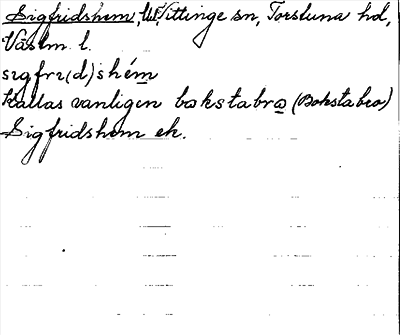 Sigfridshem, Vittinge sn, Torstuna hd,
Västm. l.
sɪgfrɪ(d)shém
Kallas vanligen bokstabro (Bokstabro)
Sigfridshem ek.